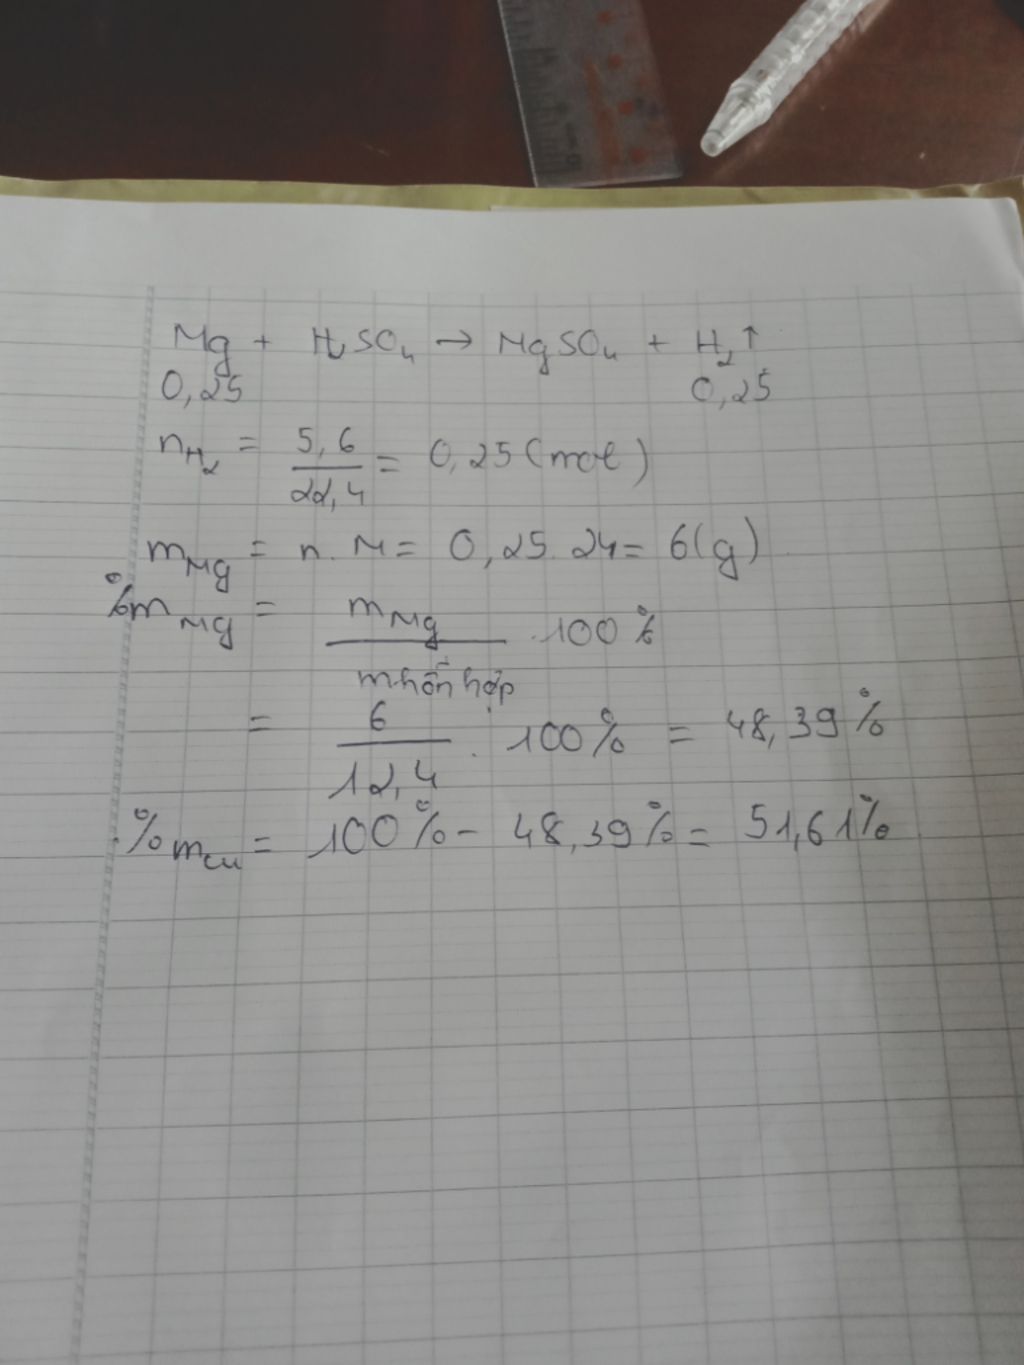 Mg + H₂SO₄ → MgSO₄ + H₂↑
0,25 0,25
nH₂ = 5,6/22,4 = 0,25 (mol)
mMg = n. M = 0,25. 24 = 6(g)
%mMg = mMg/mhỗn hợp .100%
= 6/12,4 . 100% = 48,39%
%mCu = 100% - 48,39% = 51,61%